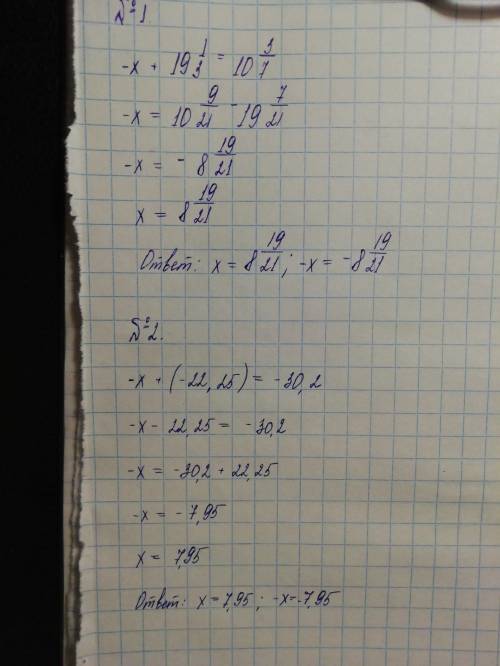 №1
-x + 19 1/3 = 10 3/7
-x = 10 9/21 - 19 7/21
-x = - 8 19/21
x = 8 19/21
Ответ: x = 8 19/21; -x = -8 19/21
№2.
-x + (-22,25) = -30,2
-x - 22,25 = -30,2
-x = -30,2 + 22,25
-x = -7,95
x = 7,95
Ответ: x = 7,95; -x = -7,95